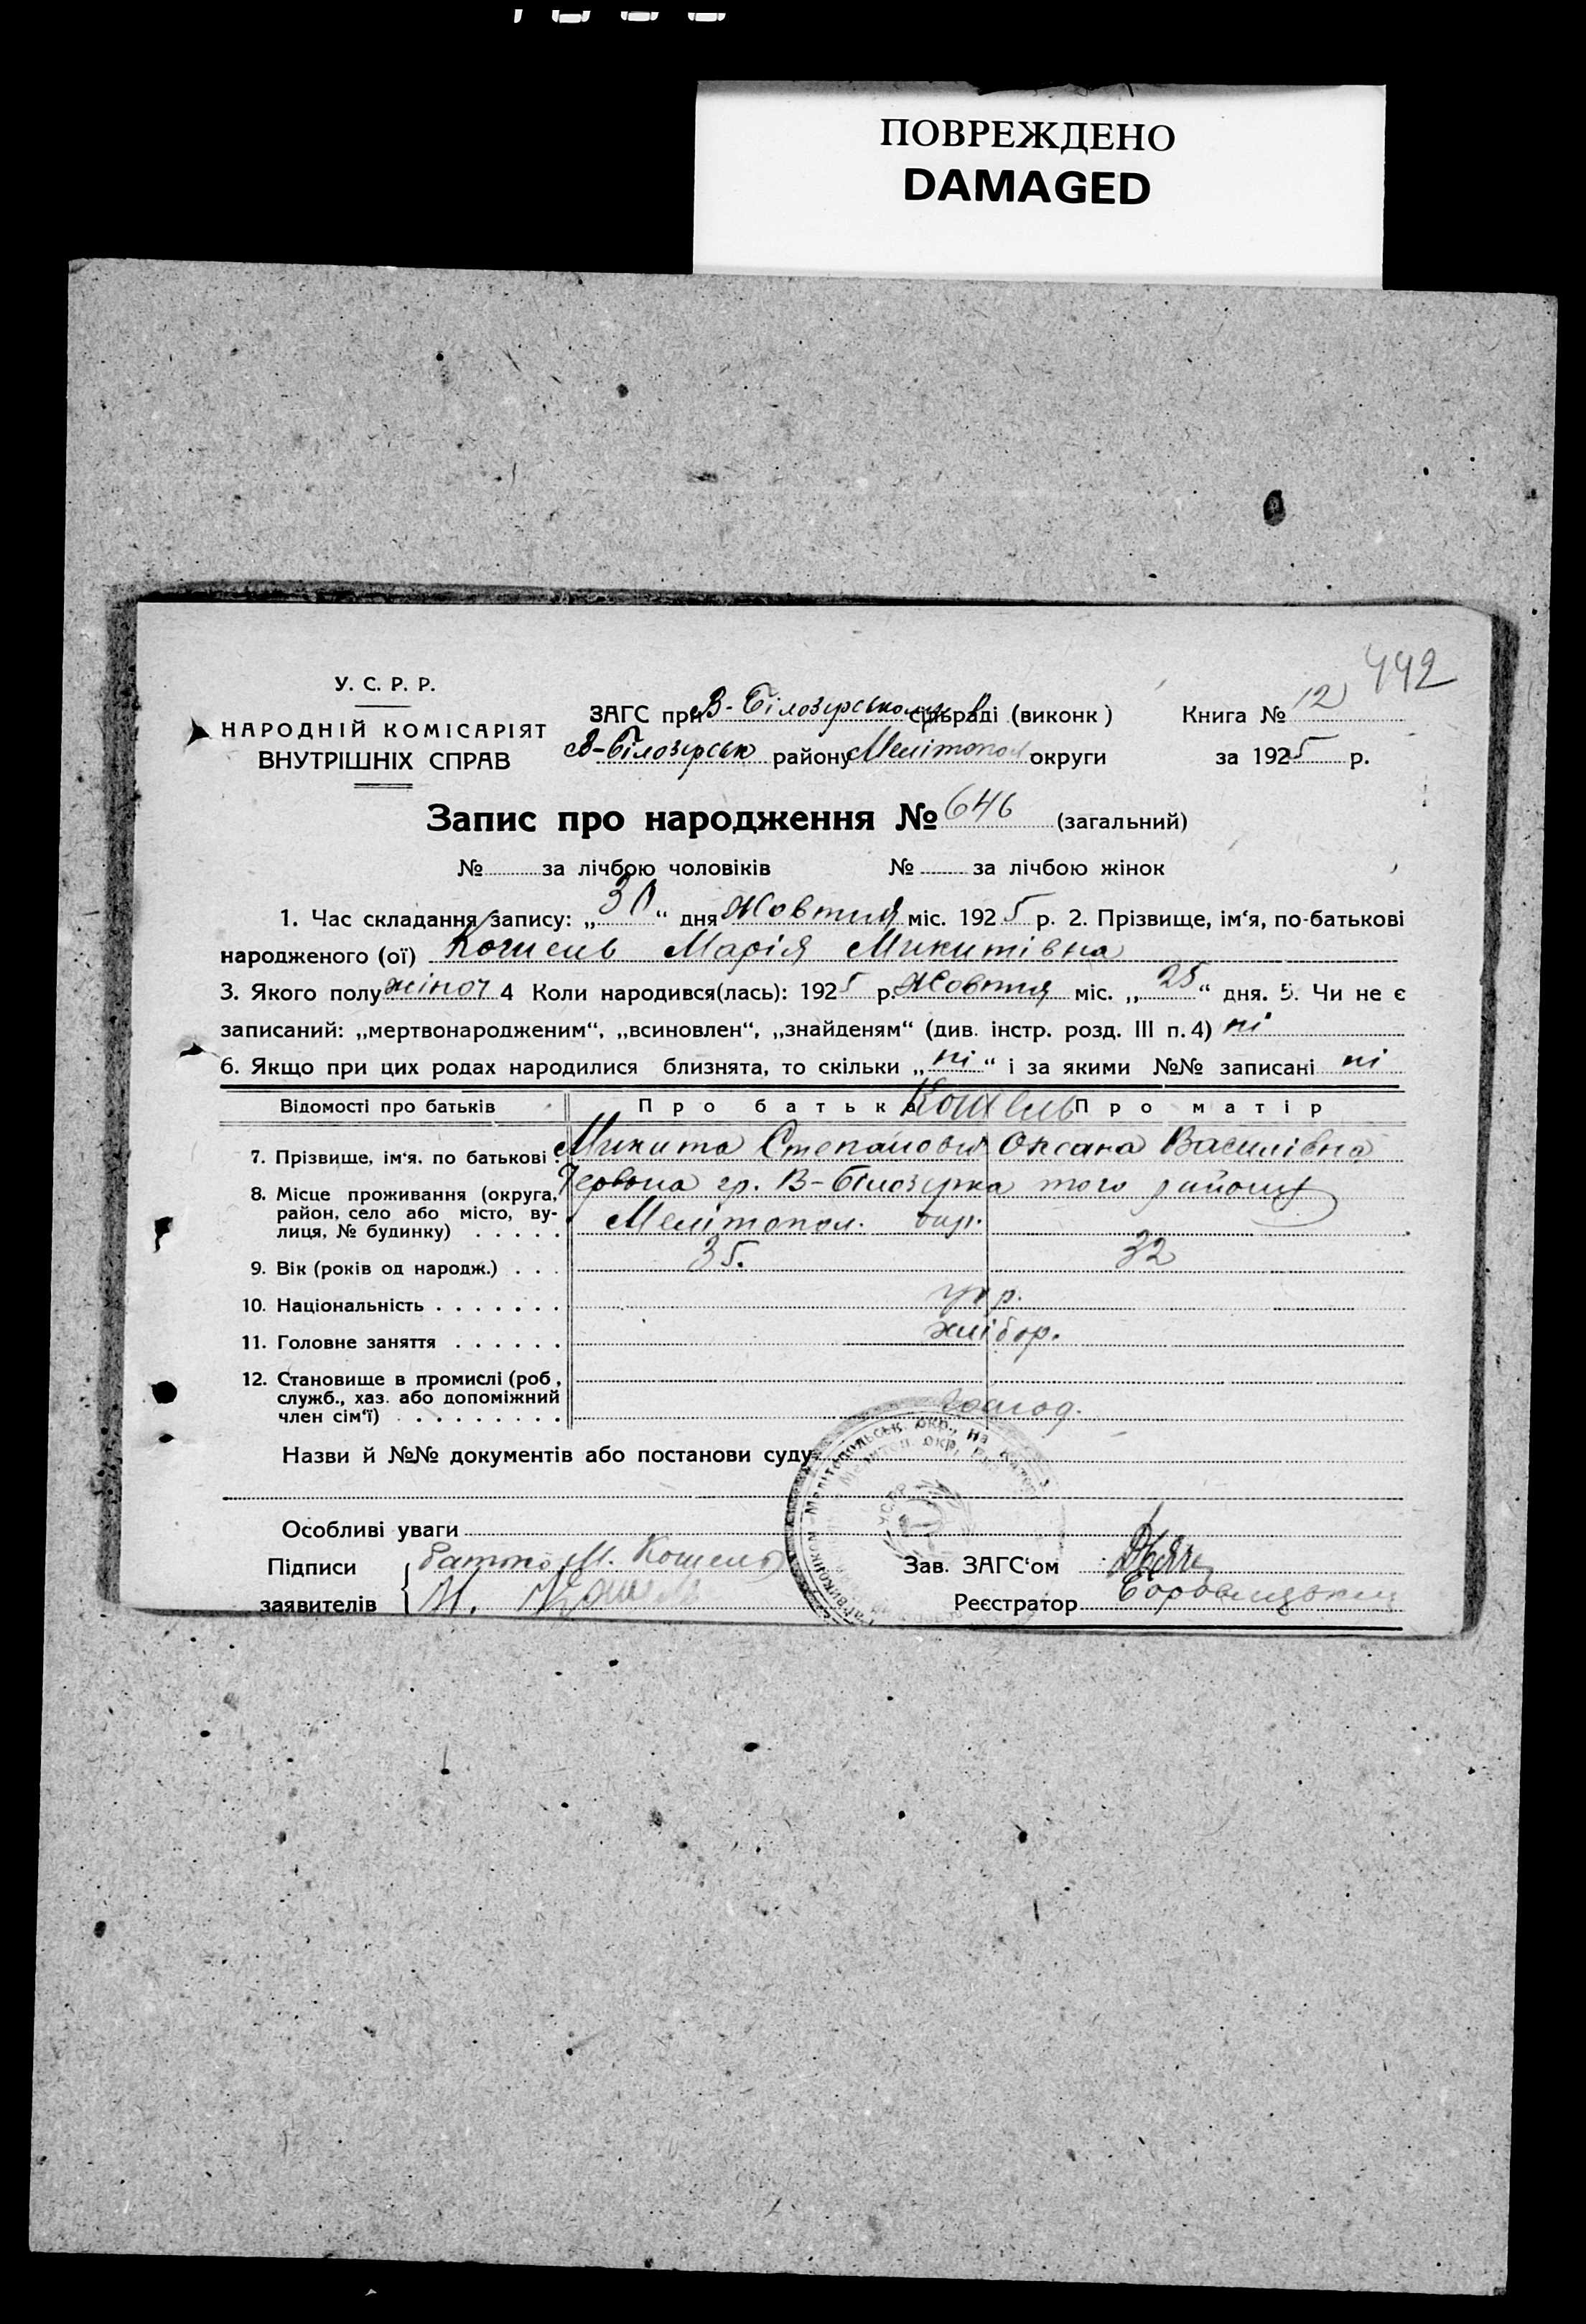 ПОВРЕЖДЕНО
DAMAGED
442
У. С. Р. Р.
НАРОДНІЙ КОМІСАРІЯТ
ВНУТРІШНІХ СПРАВ
ЗАГС при В-Білозерському сільраді (виконк) Книга № 12
В-Білозерськ району Мелітопол округи за 1925 р.
Запис про народження № 646 (загальний)
№ за лічбою чоловіків № за лічбою жінок
1. Час складання запису: „30“ дня Жовтня міс. 1925 р. 2. Прізвище, ім‘я, по-батькові
народженого (ої) Кошель Марія Микитівна
3. Якого полу жіноч 4 Коли народився(лась): 1925 р. Жовтня міс. „25“ дня. 5. Чи не є
записаний: „мертвонародженим“, „всиновлен“, „знайденям“ (див. інстр. розд. III п. 4) ні
6. Якщо при цих родах народилися близнята, то скільки „ні“ і за якими №№ записані ні
Відомості про батьків Про батька Кошель Про матір
7. Прізвище, ім‘я, по батькові Микита Степанови Оксана Василівна
8. Місце проживання (округа, район, село або місто, вулиця, № будинку) Червона гр. В-Білозірка того району
Мелітопол. окр.
9. Вік (років од народж.) 35. 32
10. Національність укр.
11. Головне заняття хлібор.
12. Становище в промислі (роб, служб., хаз. або допоміжний член сім‘ї) господ.
Назви й №№ документів або постанови суду
Особливі уваги
Підписи батько М. Кошель Зав. ЗАГС‘ом
заявителів М. Кошель Реєстратор